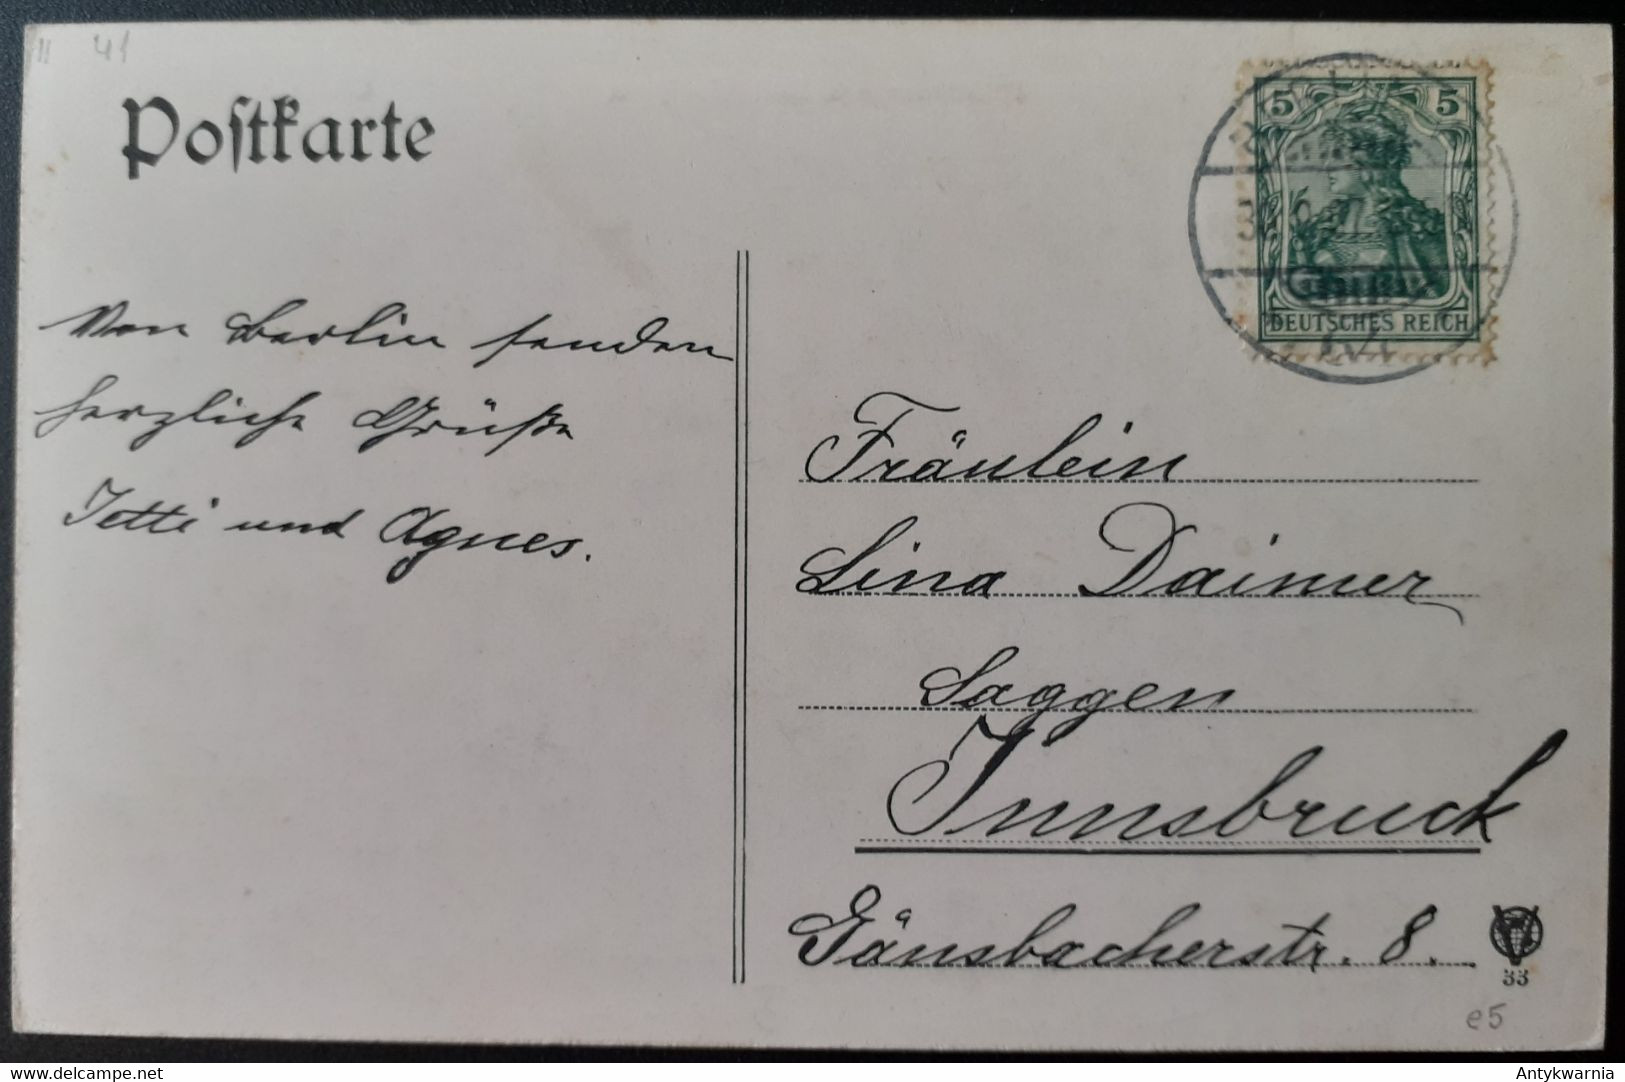 11 41
Postkarte
5 5
DEUTSCHES REICH
Von Berlin senden
herzliche Grüße
Jetti und Agnes.
Fräulein
Lina Daimer
Saggen
Innsbruck
Gänsbacherstr. 8.
33
e5
delcampe.net
Antykwarnia